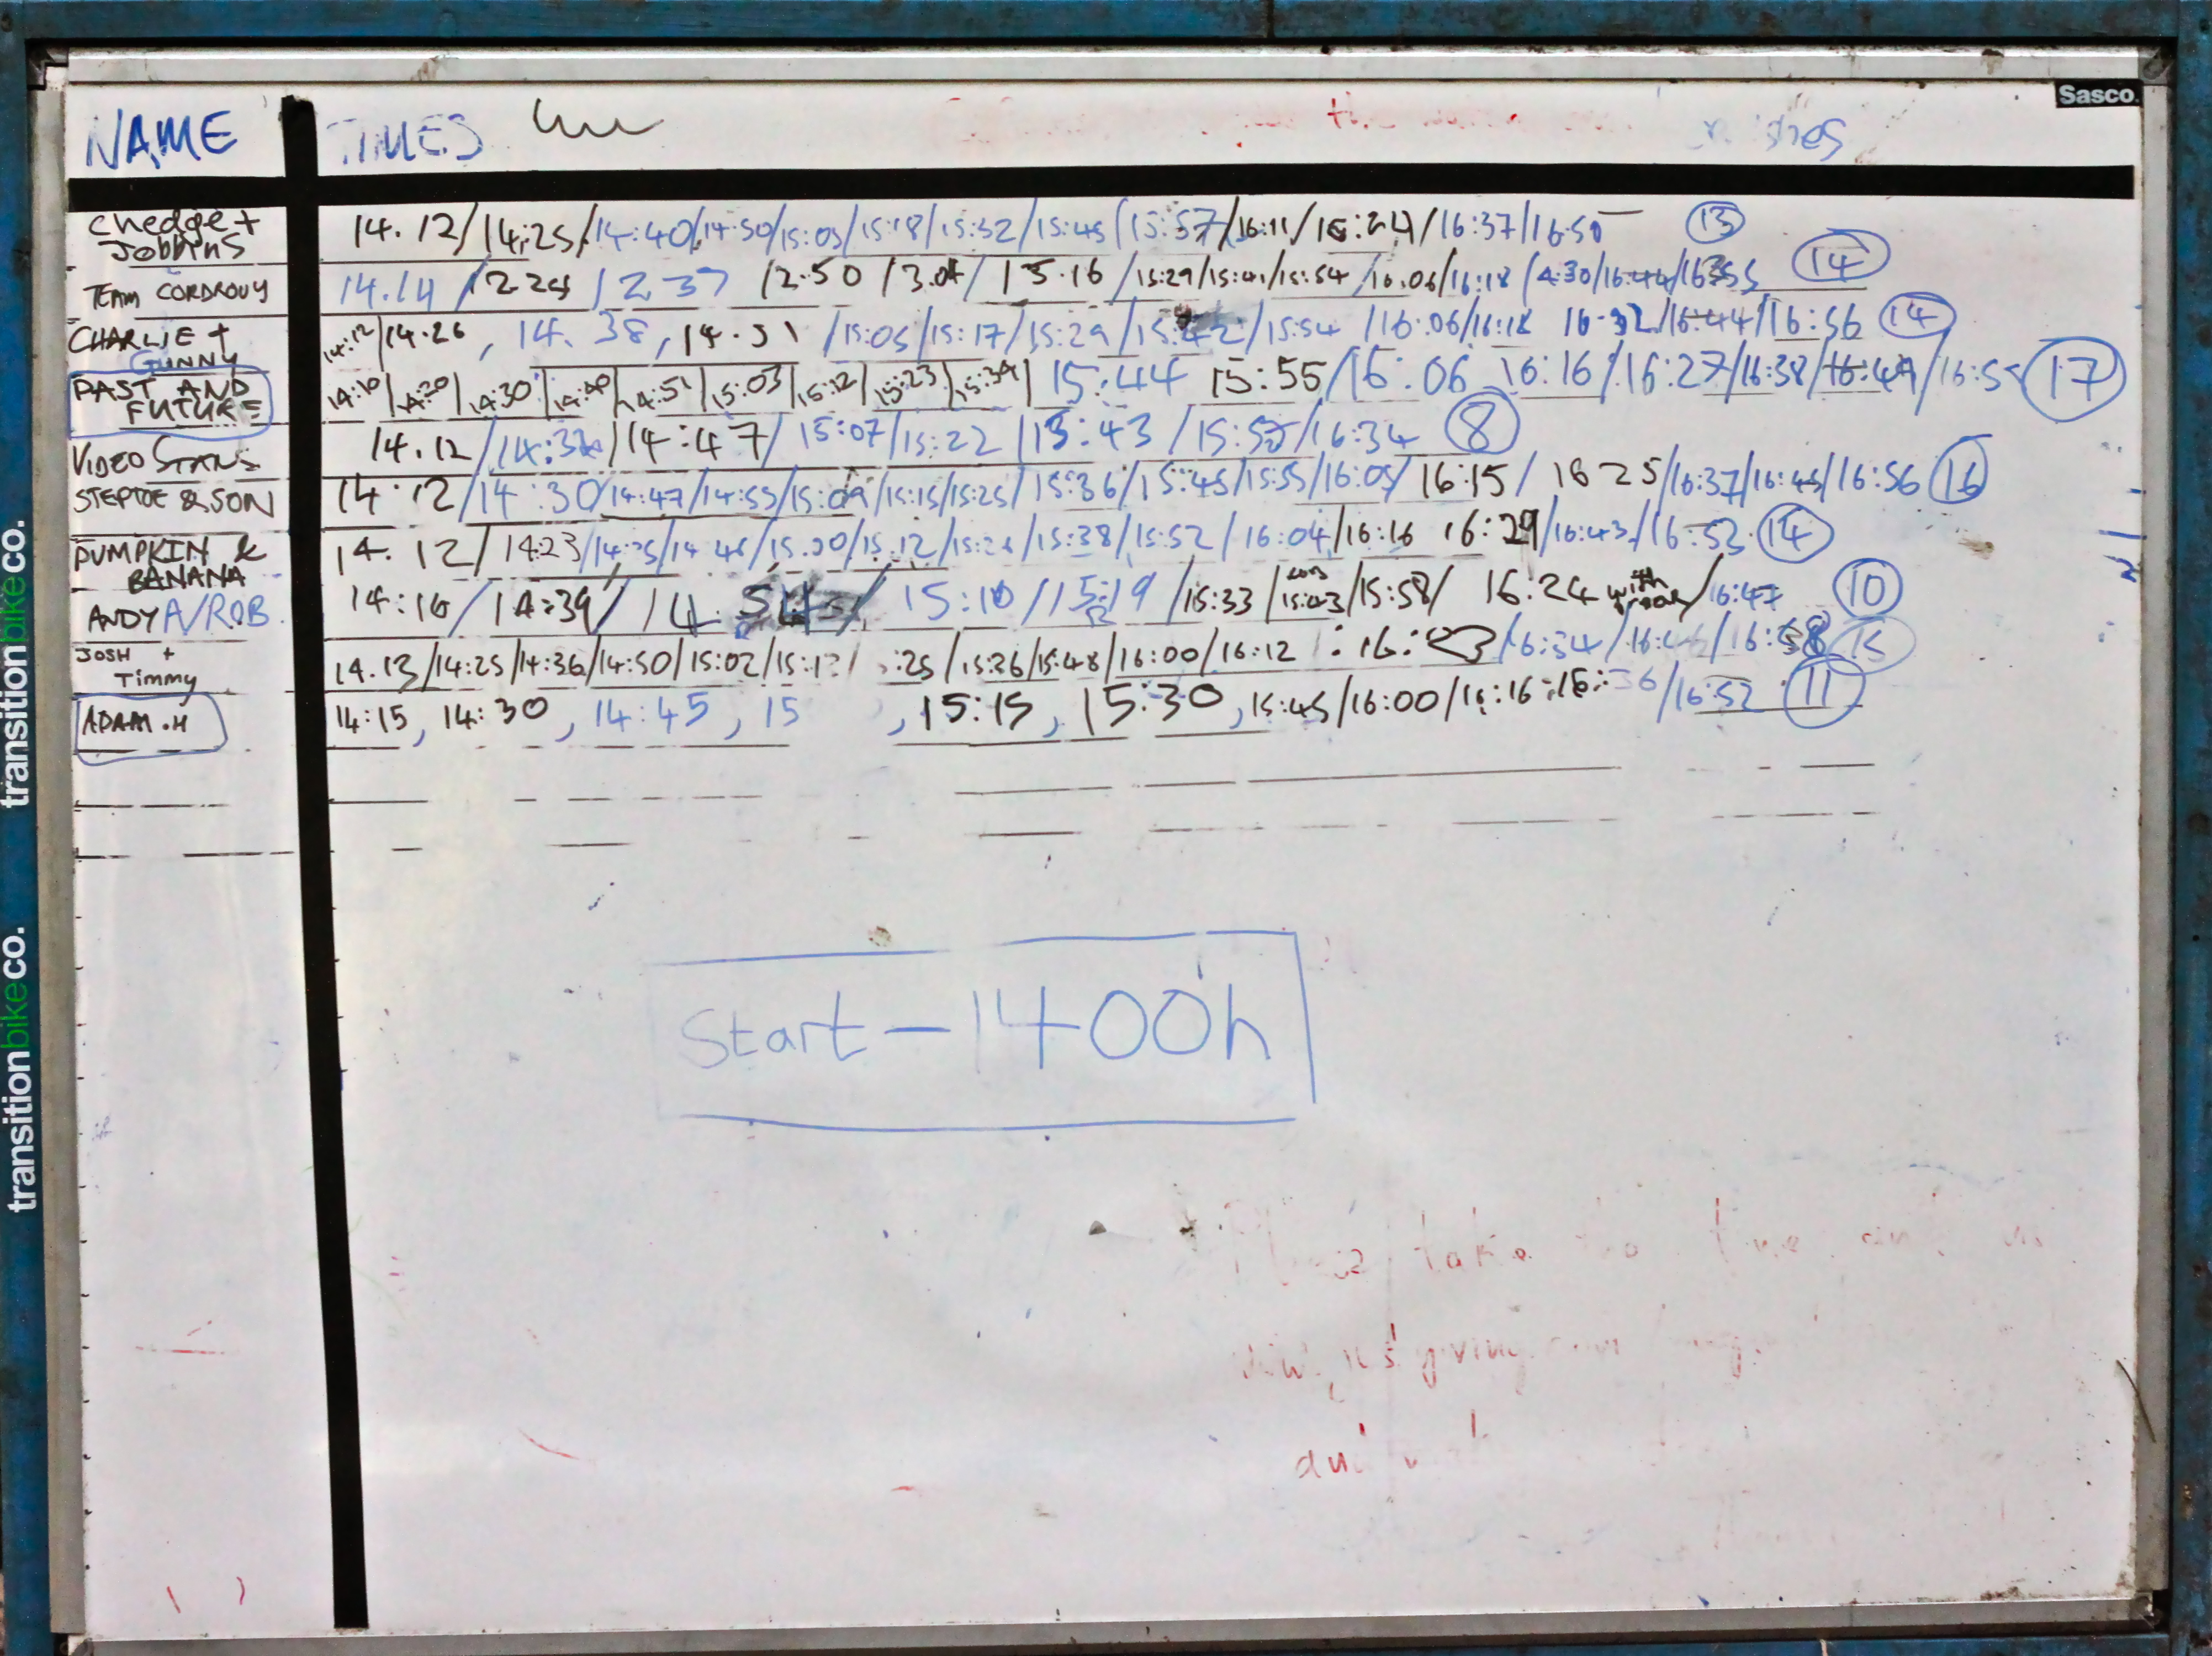 Sasco.
NAME TIMES
chedge + Jobbins 14.12/14:25/14:40/14:50/15:05/15:18/15:32/15:45/15:57/16:11/16:24/16:37/16:50 13
TEAM CORDROUY 14.14/2.24/2.37/2.50/3.04/15.16/15:29/15:41/15:54/16:06/16:18/4:30/16:44/16:55 14
CHARLIE + GUNNY 14:12/14.26, 14.38, 14.51/15:05/15:17/15:29/15:42/15:54/16:06/16:18 16:32/16:44/16:56 14
PAST AND FUTURE 14:10/14:20/14:30/14:40/14:51/15:03/15:12/15:23/15:34/15:44 15:55/16:06 16:16/16:27/16:38/16:49/16:5 17
VIDEO STANS 14.12/14:32/14:47/15:07/15:22/15:43/15:55/16:34 8
STEPTOE & SON 14.12/14:30/14:47/14:55/15:09/15:15/15:25/15:36/15:45/15:55/16:05/16:15/16 25/16:37/16:45/16:56 16
PUMPKIN & BANANA 14.12/1423/14:35/14 46/15.00/15.12/15:26/15:38/15:52/16:04/16:16 16:29/16:43/16:53 14
ANDY A/ROB 14:16/14:39/14.54/15:10/15:19/15:33/15:43/15:58/16:24 with /16:47 10
JOSH + Timmy 14.13/14:25/14:36/14:50/15:02/15:1 :25/15:36/15:48/16:00/16:12 : 16:23/16:34/16:46/16:58 15
ADAM.H 14:15, 14:30, 14:45, 15 , 15:15, 15:30, 15:45/16:00/16:16 16:36/16:52 11
Start – 1400h
take
giving
transitionbikeco.
transitionbikeco.